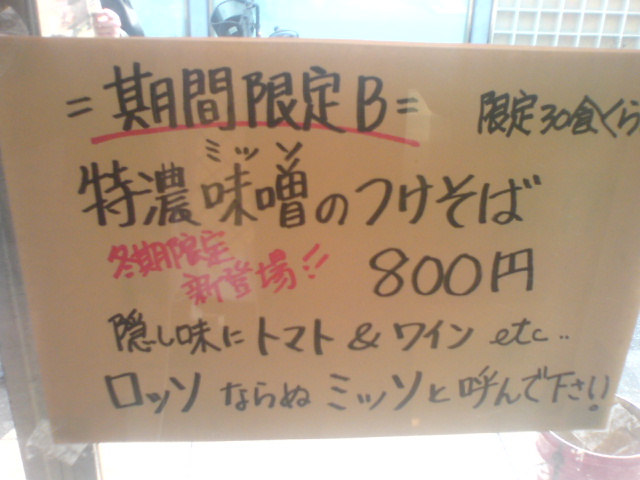 =期間限定B=
限定30食くら
ミッソ
特濃味噌のつけそば
冬期限定
新登場!!
800円
隠し味にトマト&ワイン etc..
ロッソならぬミッソと呼んで下さい!